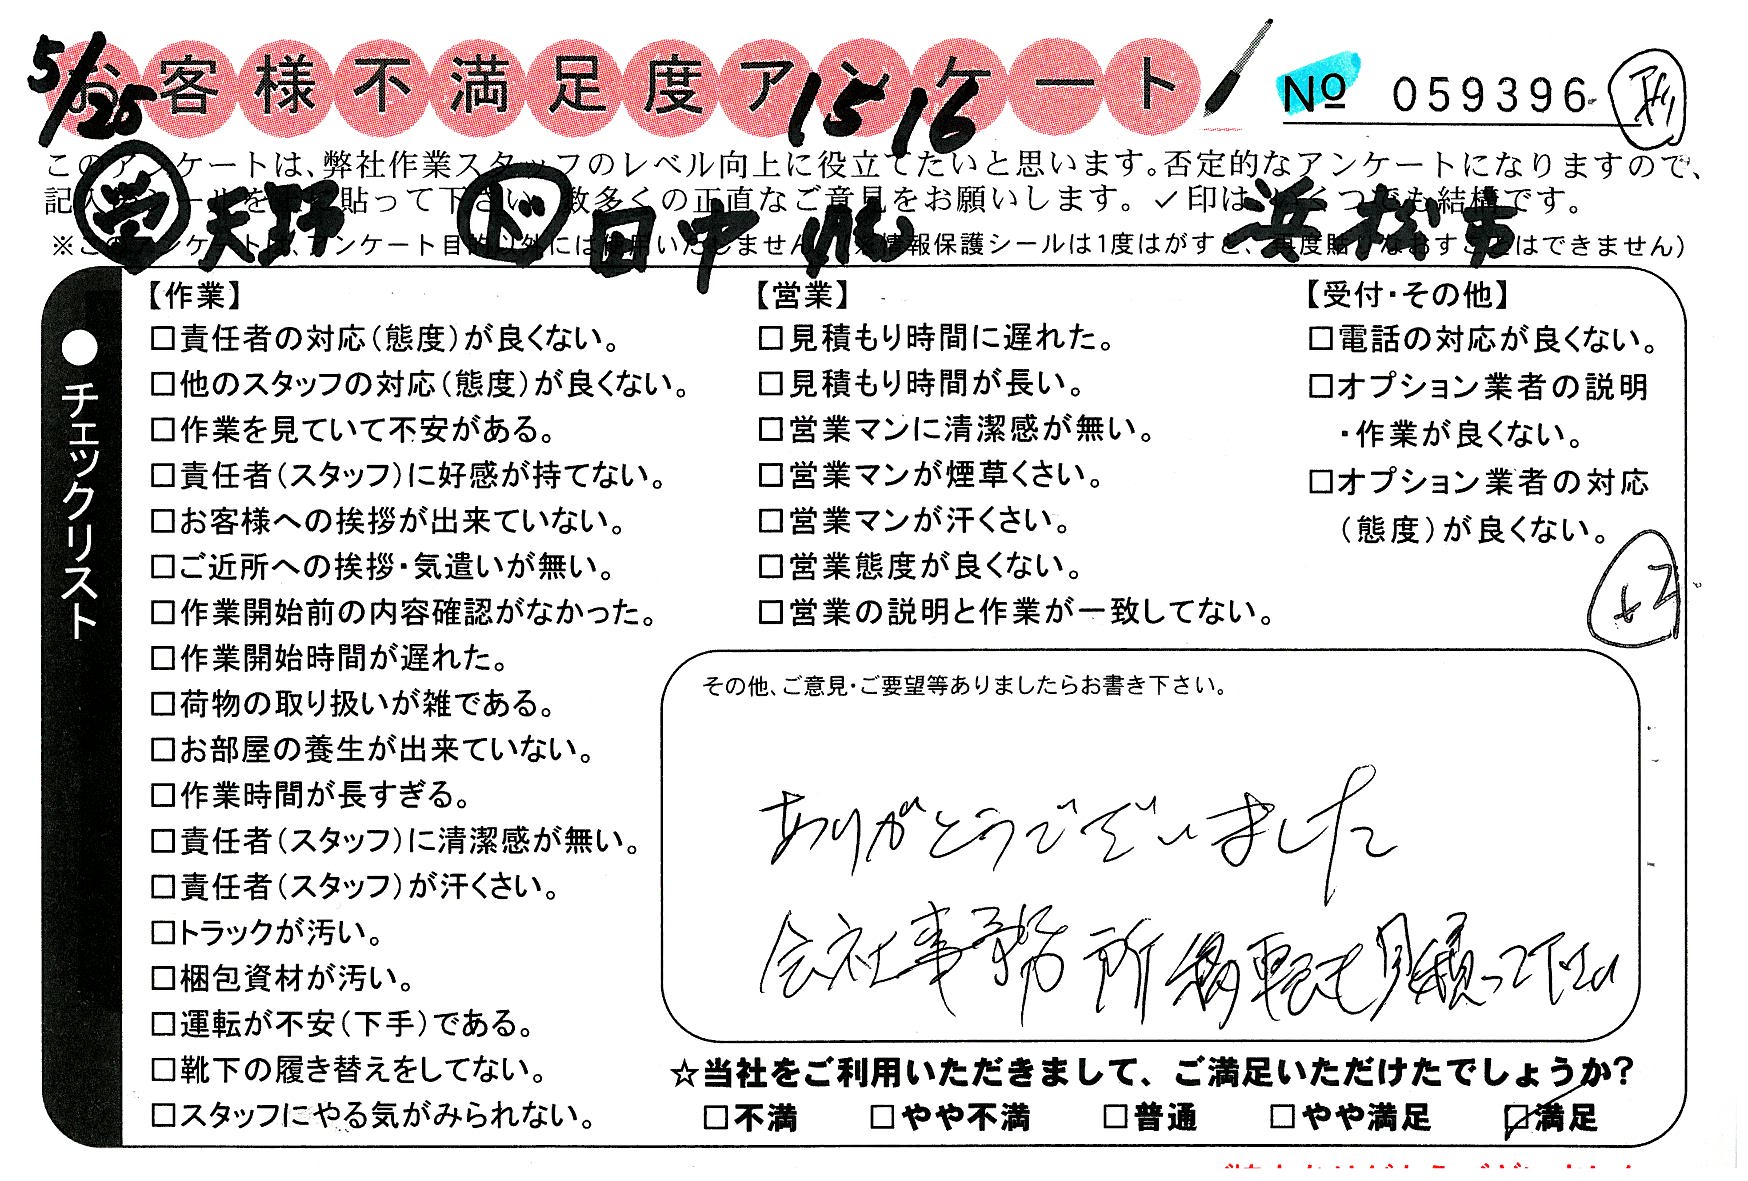 お客様不満足度アンケート
5/25
15 16
No 059396
このアンケートは、弊社作業スタッフのレベル向上に役立てたいと思います。否定的なアンケートになりますので、
記入後シールを 貼って下さい。数多くの正直なご意見をお願いします。✓印はいくつでも結構です。
※このアンケートは、アンケート目的以外には使用いたしません。(※情報保護シールは1度はがすと、再度貼りなおすことはできません)
営 天野 ド 田中 浜松市
●チェックリスト
【作業】
□責任者の対応(態度)が良くない。
□他のスタッフの対応(態度)が良くない。
□作業を見ていて不安がある。
□責任者(スタッフ)に好感が持てない。
□お客様への挨拶が出来ていない。
□ご近所への挨拶・気遣いが無い。
□作業開始前の内容確認がなかった。
□作業開始時間が遅れた。
□荷物の取り扱いが雑である。
□お部屋の養生が出来ていない。
□作業時間が長すぎる。
□責任者(スタッフ)に清潔感が無い。
□責任者(スタッフ)が汗くさい。
□トラックが汚い。
□梱包資材が汚い。
□運転が不安(下手)である。
□靴下の履き替えをしてない。
□スタッフにやる気がみられない。
【営業】
□見積もり時間に遅れた。
□見積もり時間が長い。
□営業マンに清潔感が無い。
□営業マンが煙草くさい。
□営業マンが汗くさい。
□営業態度が良くない。
□営業の説明と作業が一致してない。
【受付・その他】
□電話の対応が良くない。
□オプション業者の説明
・作業が良くない。
□オプション業者の対応
(態度)が良くない。
その他、ご意見・ご要望等ありましたらお書き下さい。
ありがとうございました
会社事務所移転も見積って下さい
☆当社をご利用いただきまして、ご満足いただけたでしょうか?
□不満 □やや不満 □普通 □やや満足 ☑満足